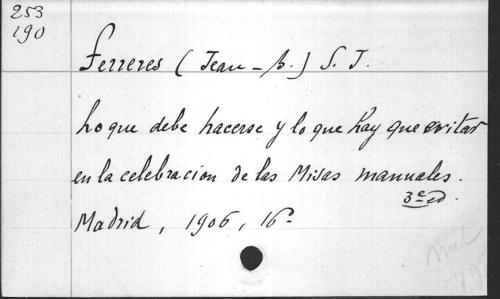 253
190
Ferreres (Jean-B.) S. J.
Lo que debe hacerse y lo que hay que evitar
en la celebracion de las Misas manuales.
3e ed.
Madrid, 1906, 16°